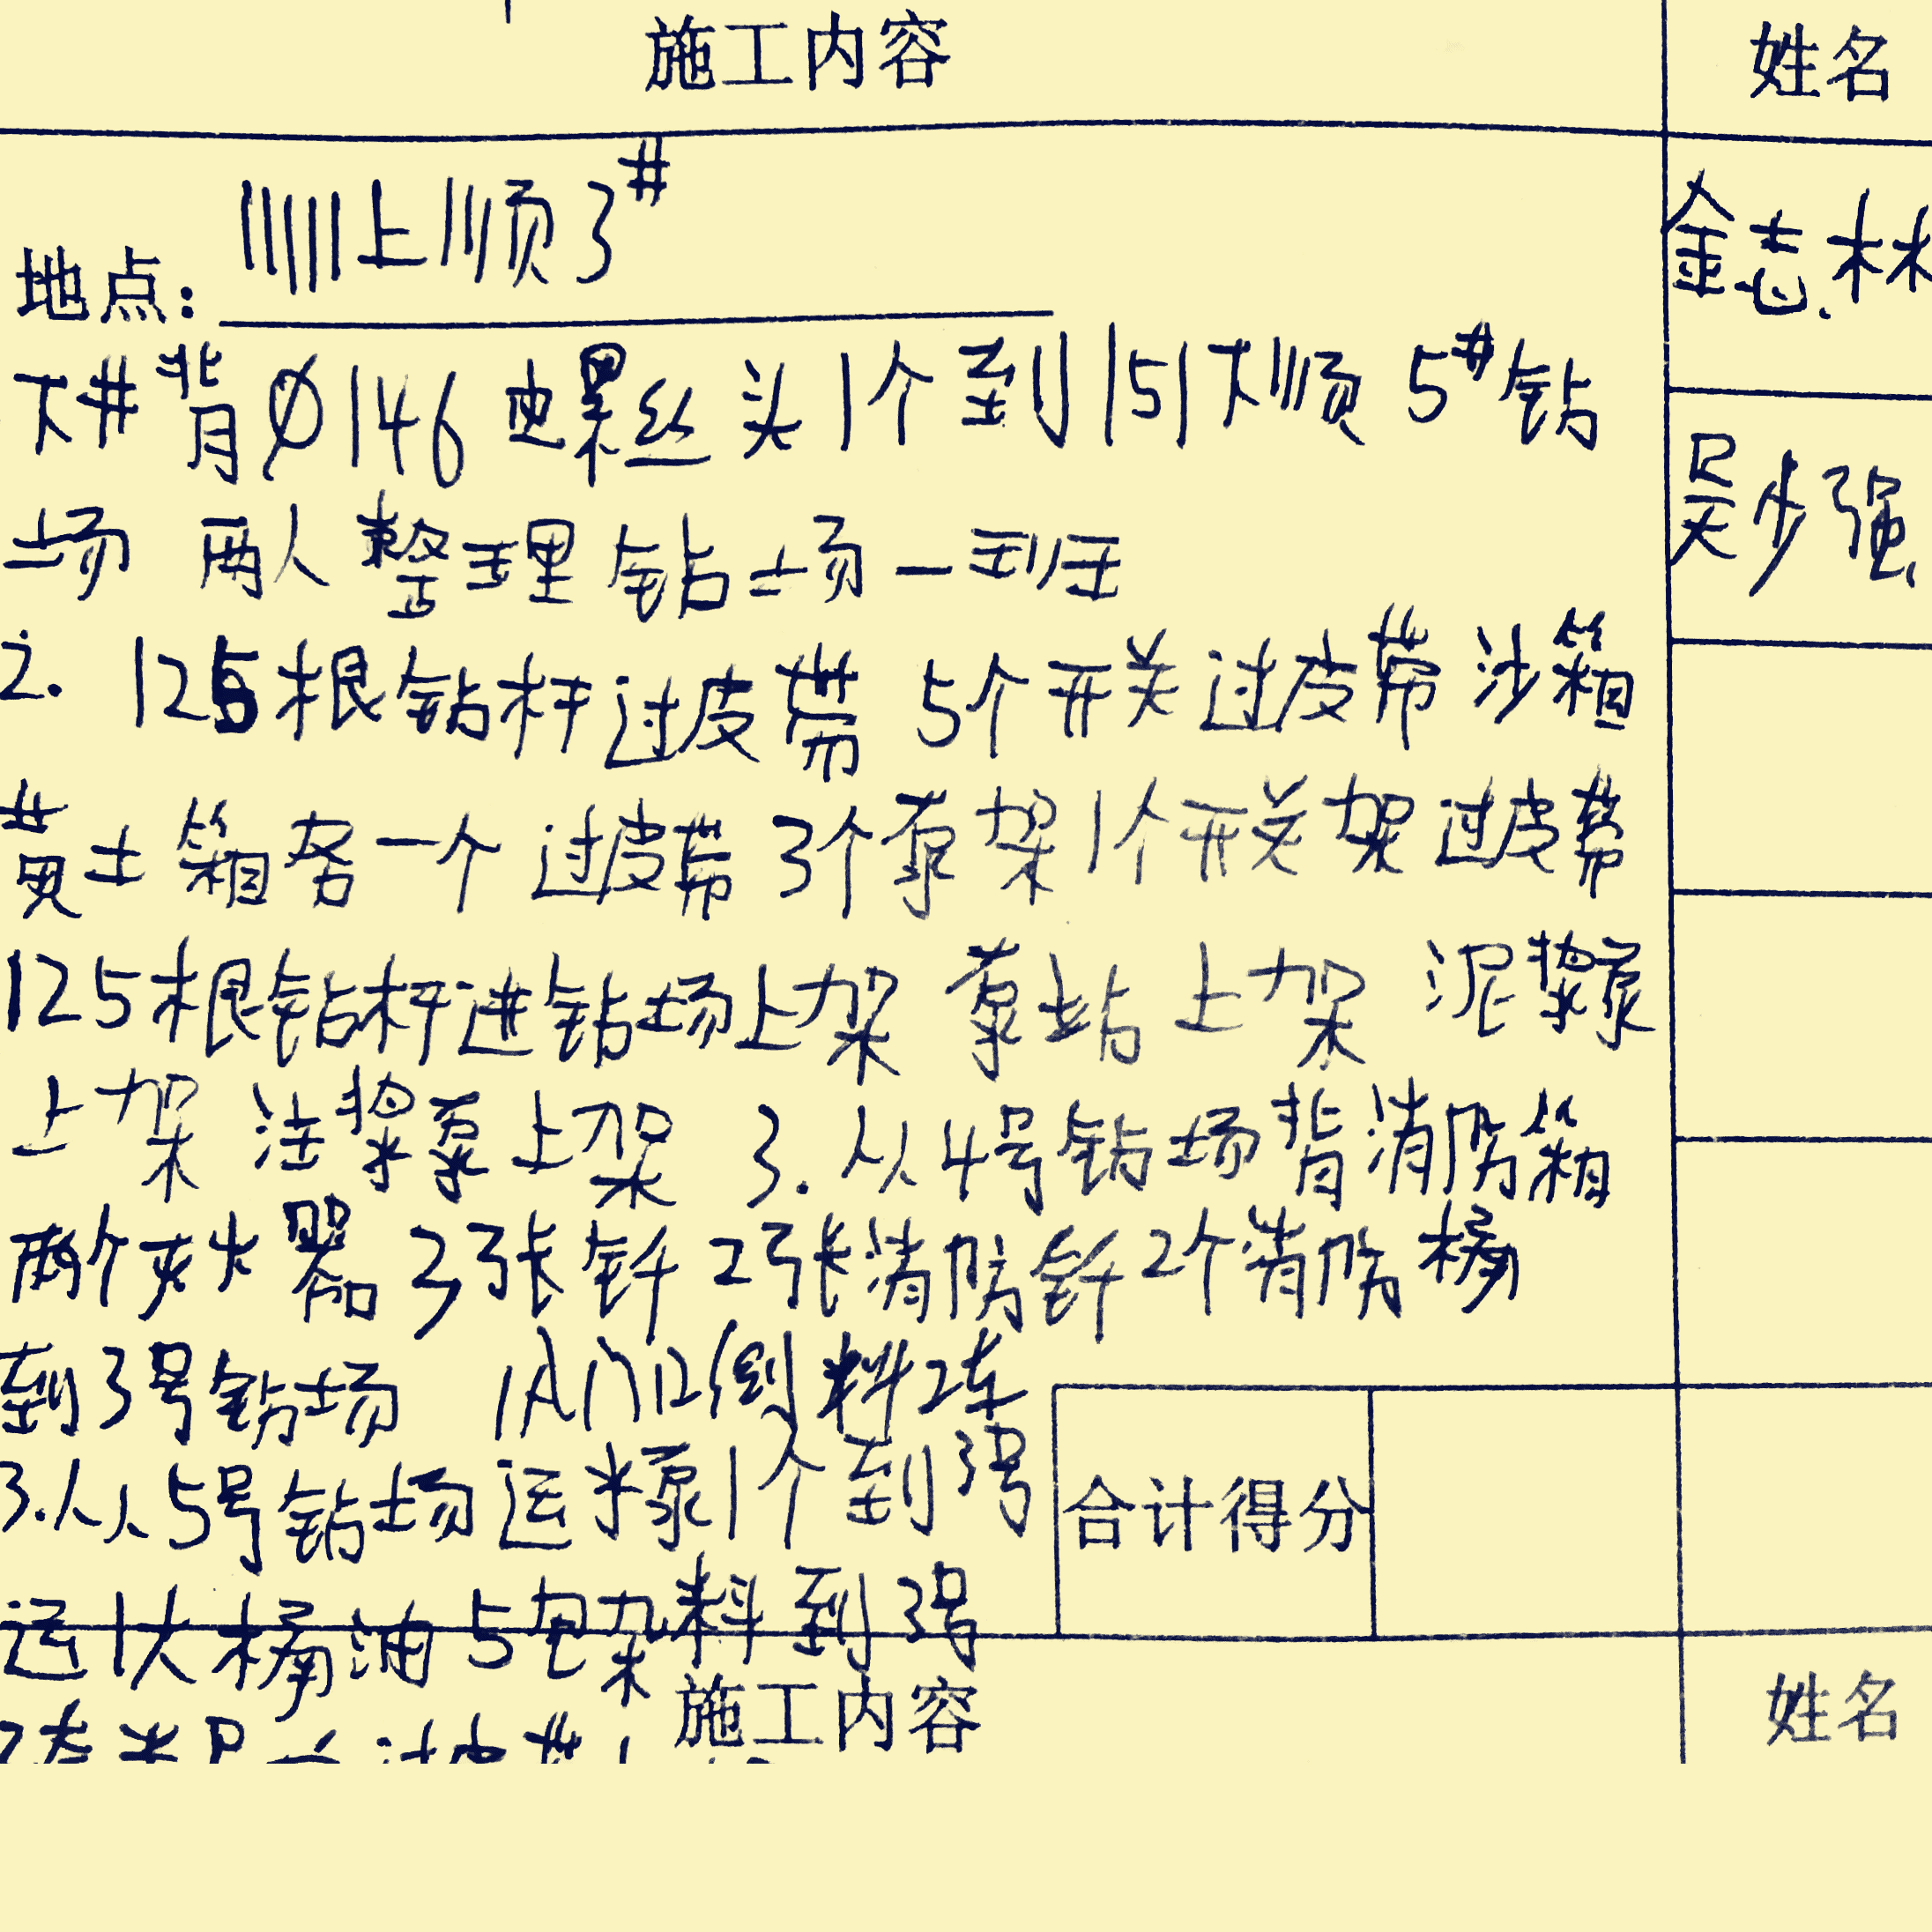 施工内容 姓名
地点: 11111上顺3# 金志林
下井背Ø146 螺丝头1个到1151下顺5#钻
场 两人整理钻场一到班 吴步强
2. 125根钻杆过皮带 5个开关过皮带 沙箱
黄土箱各一个过皮带 3个泵架1个开关架过皮带
125根钻杆进钻场上架 泵站上架 泥浆泵
上架 注浆泵上架 3.从4号钻场背消防箱
两个灭火器 3张钎 2张消防钎2个消防桶
到3号钻场 倒料2车
3.从5号钻场运水泵1个到3号
合计得分
运1大桶油5包杂料到3号
施工内容 姓名